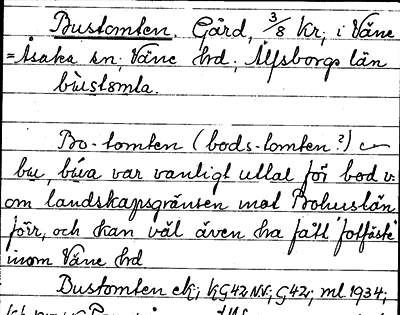 Bustomten. Gård, 3/8 kr, i Väne
=Åsaka sn, Väne hd, Älfsborgs län
bùstomta.
Bo-tomten (bods-tomten?)
bu, búva var vanligt uttal för bod v.
om landskapsgränsen mot Bohuslän
förr, och kan väl även ha fått "fotfäste"
inom Väne hd
Bustomten ek; KG42 N.V.; G42; ml 1934;